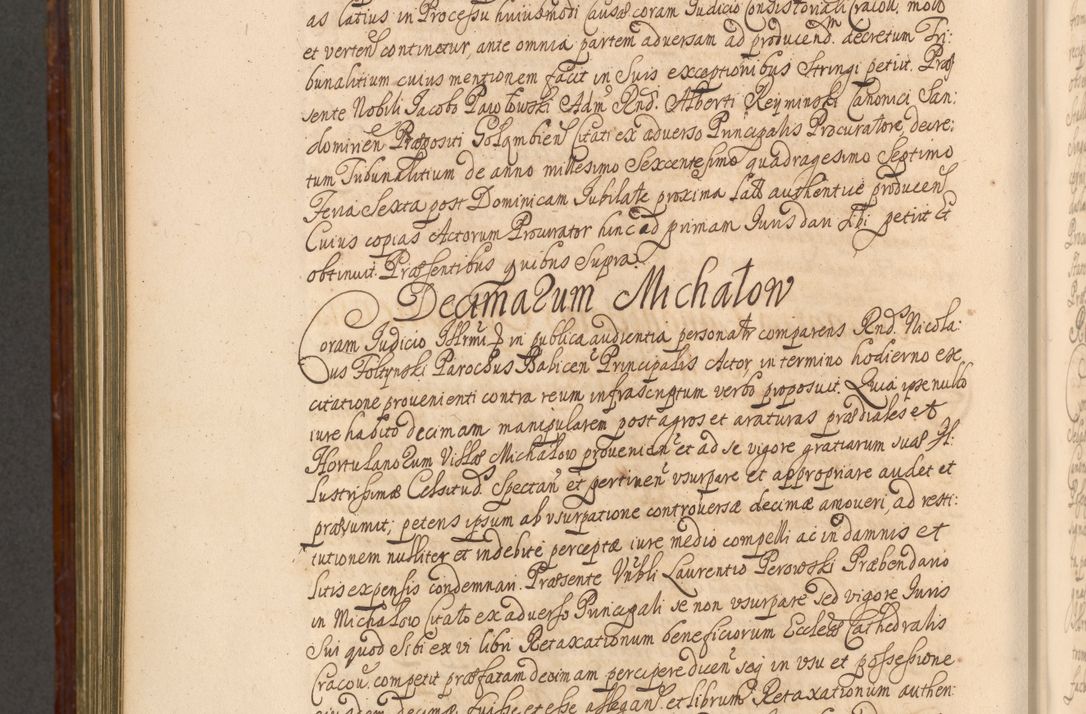 as latius in Processu huiusmoti Causæ coram Iudicio Consistoriali Cracou. moto
et verten continetur, ante omnia partem aduersam ad producend. decretum Tri:
bunalitium cuius mentionem facit in Suis exceptionibus Stringi petiit. Præ
sente Nobili Jacobo Pawłowski Adm Rnd. Alberti Reyminski Canonici San:
domirien Præpositi Gołambien Citati ex aduerso Principalis Procuratore, decre:
tum Tribunalitium de anno millesimo Sexcentesimo quadragesimo Septimo
Feria Sexta post Dominicam Iubilate proxima Latt authentice producen
Cuius copias Actorum Procurator hinc ad primam Iuris dari Sibi petiit et
obtinuit. Præsentibus quibus Supra.
Decimarum Michałow
Coram Iudicio Illrmi D in publica audientia personatr comparens Rnd. Nicola:
us Foltynski Parochus Babicen Principalis Actor, in termino hodierno ex
citatione provenienti contra reum infrascriptum verbo proposuit. Quia ipse nullo
iure habito decimam manipularem post agros et araturas prædiales et
Hortulanorum Villæ Michałow provenien et ad se vigore gratiarum suæ Il:
lustrissimæ Celsitud. Spectan et pertinen vsurpare et appropriare audet et
præsumit; petens ipsum ab vsurpatione controversæ decimæ amoveri, ad resti:
tutionem nulliter et indebite perceptæ iure medio compelli ac in damnis et
litis expensis condemnari. Præsente Vnbli Laurentio Perowski Præbendario
in Michałow Citato ex aduerso Principali se non vsurpare sed vigore Iuris
Sui quod Sibi ex vi libri Retaxationum beneficiorum Eccleæ Cathedralis
Cracou. competit præfatam decimam percipere ducen seq in vsu et possessione
eiusdem decimæ fuisse et esse allegan. et librum Retaxationum authen: